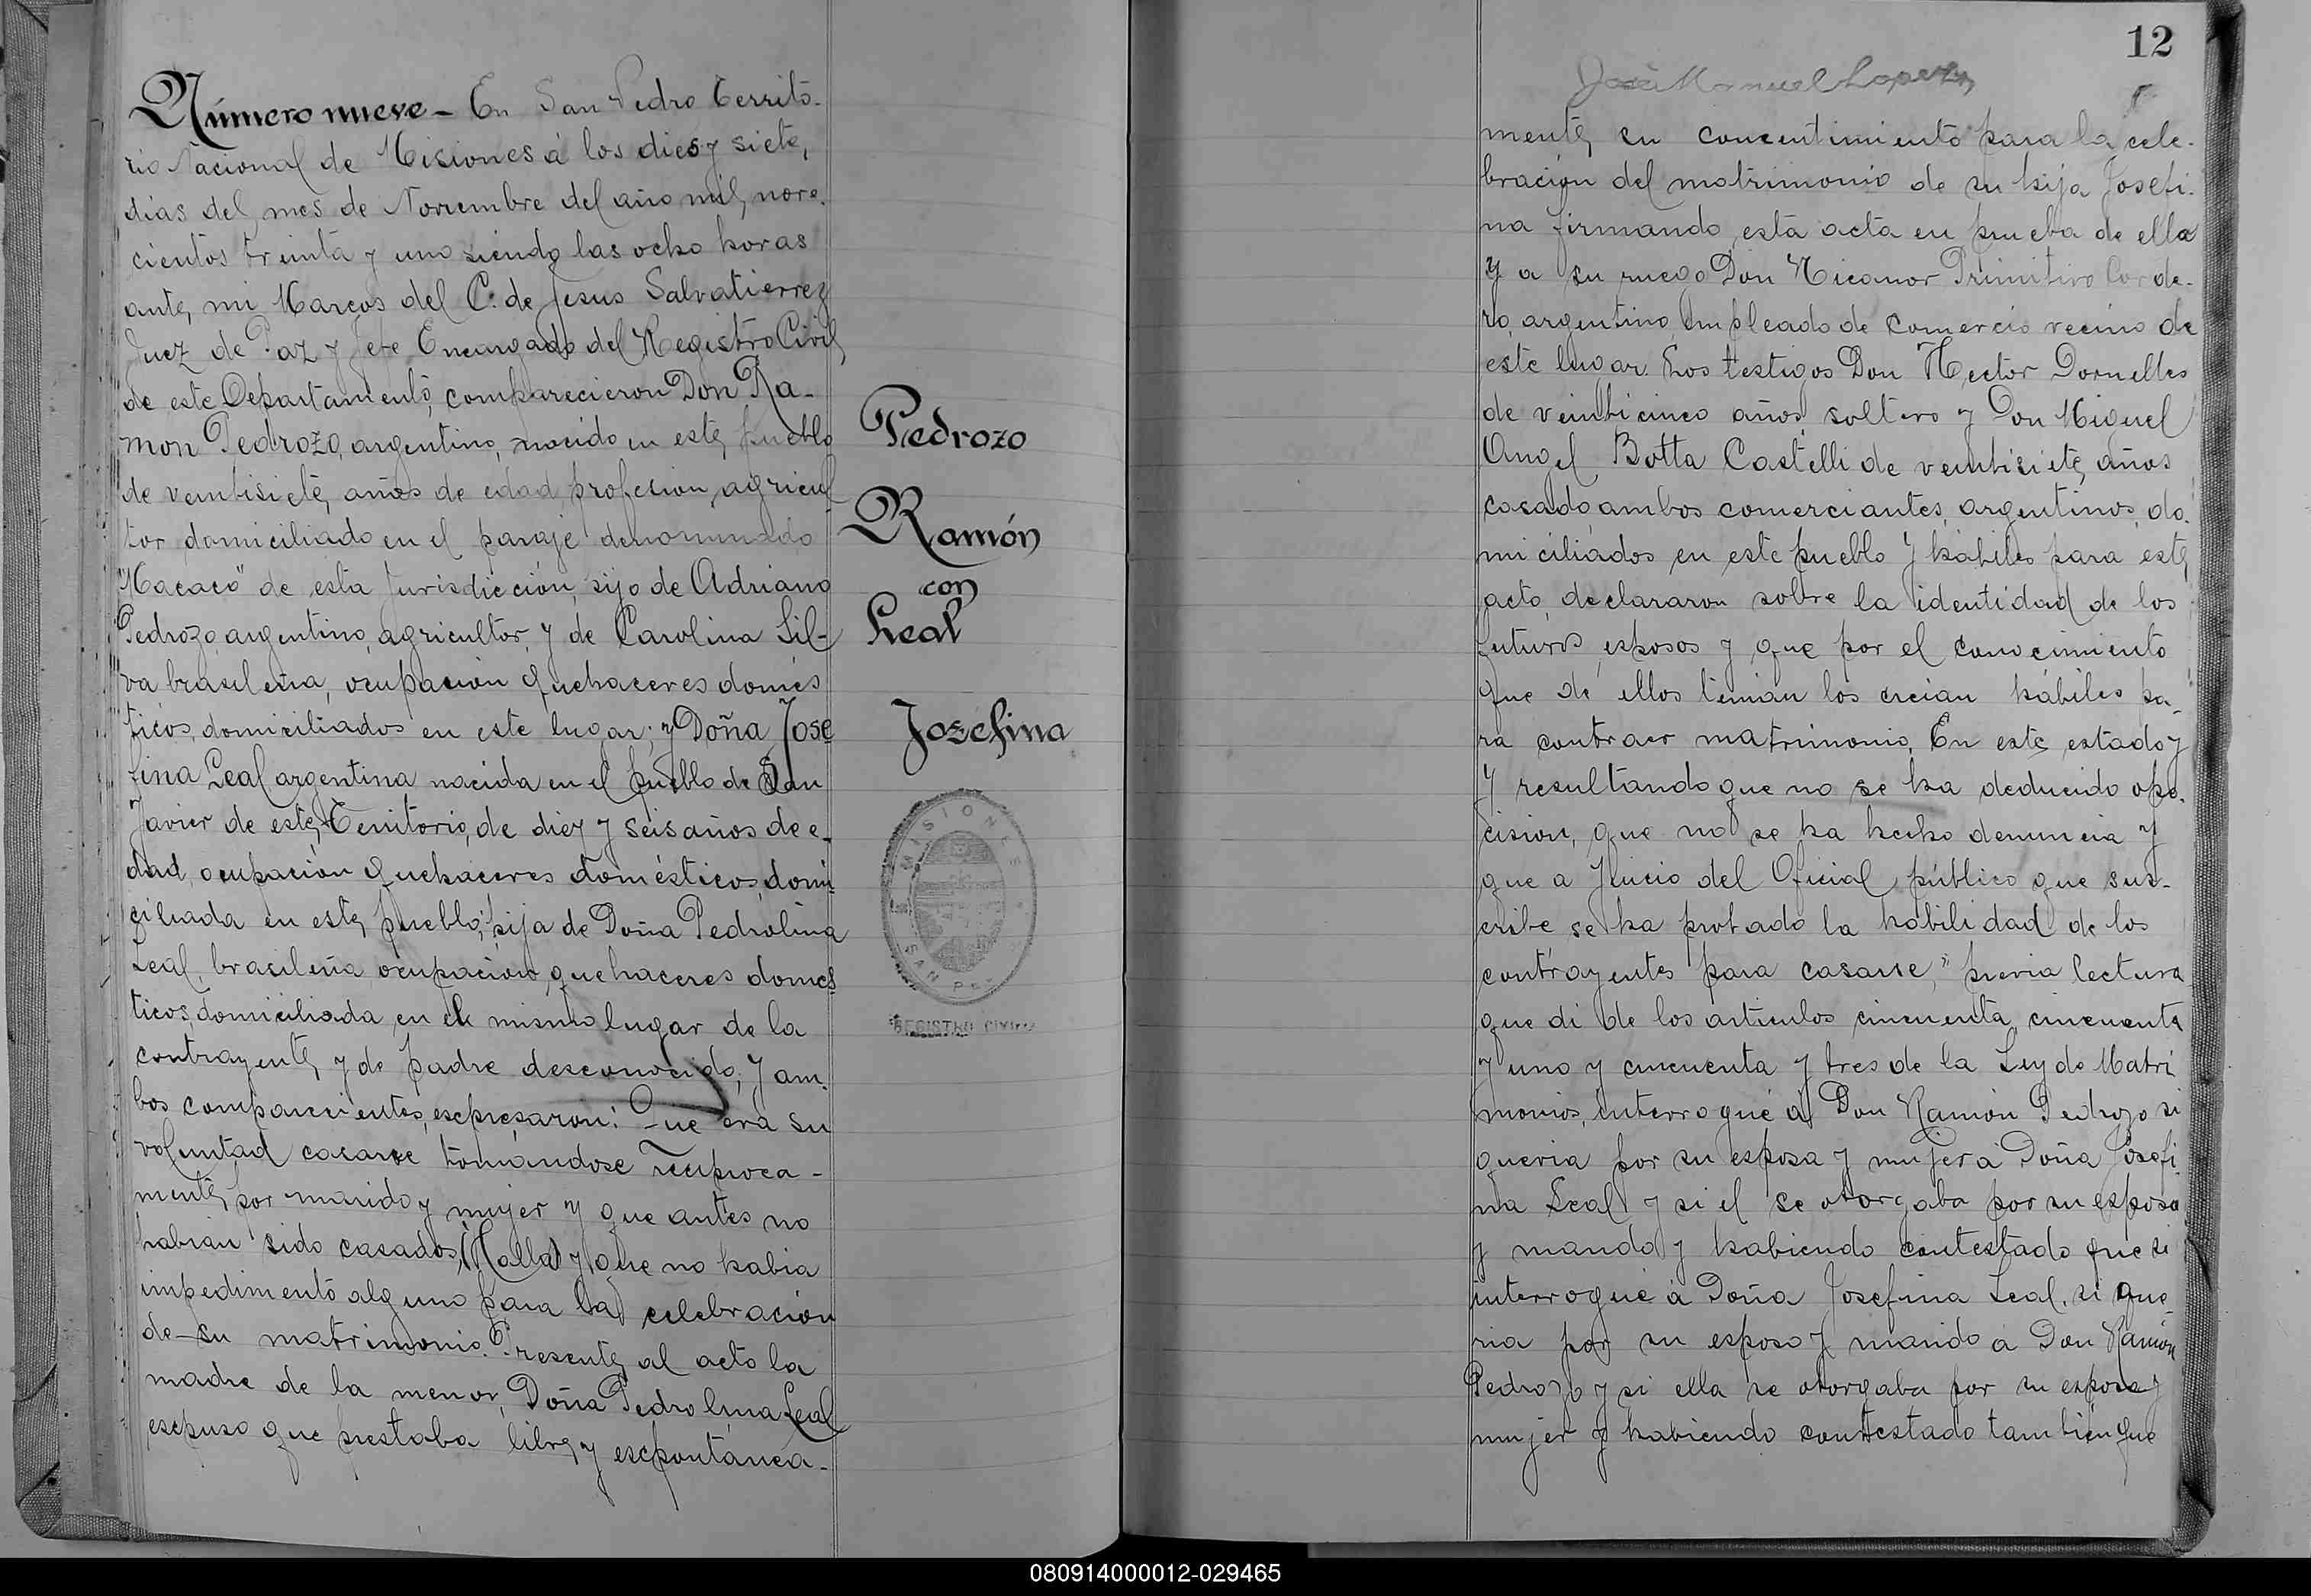 Número nueve - En San Pedro Territo-
rio Nacional de Misiones á los dies y siete,
dias del mes de Noviembre del año mil, nove-
cientos treinta y uno siendo las ocho horas
ante, mi Marcos del C. de Jesus Salvatierrez
Juez de Paz y Jefe Encargado del Registro Civil,
de este Departamento, comparecieron Don Ra-
mon Pedrozo, argentino, nacido en este, pueblo
de ventisiete, años de edad, profesion, agricul
tor domiciliado en el paraje denominado
"Macaco" de esta Jurisdicción, hijo de Adriano
Pedrozo, argentino, agricultor, y de Carolina Sil-
va brasileña, ocupasión quehaceres domés
ticos, domiciliados en este lugar; y Doña Jose
fina Leal argentina nacida en el pueblo de San
Javier de este, Territorio, de diez y seis años de e-
dad, ocupasión quehaceres domésticos, domi-
ciliada en este, pueblo, hija de Doña Pedrolina
Leal, brasileña ocupasión, quehaceres domés
ticos, domiciliada en el mismo lugar de la
contrayente, y de padre desconocido; y am-
bos comparecientes, escpresaron: Que era su
voluntad casarse tomandose reciproca-
mente, por marido y mujer y que antes no
habian sido casados, (Halla) y que no habia
impedimento alguno para la celebración
de su matrimonio. Presente, al acto la
madre de la menor, Doña Pedrolina Leal
escpuso que prestaba libre, y escpontánea-
Pedrozo
Ramón
con
Leal
Josefina
MISIONES
SAN PE
REGISTRO CIVIL
12
José Manuel Lopez
mente, su consentimiento para la cele-
bración del matrimonio de su hija Josefi-
na firmando, esta acta en prueba de ella
y a su ruego Don Nicanor Primitivo Corde-
ro, argentino, empleado de comercio vecino de
este lugar. Los testigos Don Hector Dornelles
de veinticinco años, soltero y Don Miguel
Angel Botta Castelli de ventisiete, años
casado, ambos comerciantes, argentinos, do-
miciliados en este pueblo y hábiles para este,
acto, declararon sobre la identidad de los
futuros esposos y que por el conocimiento
que de ellos tenian los creian hábiles pa-
ra contraer matrimonio, En este estado y
y resultando que no se ha deducido opo-
cision, que no se ha hecho denuncia y
que a Juicio del Oficial público que sus-
cribe se ha probado la habilidad de los
contrayentes para casarse, previa lectura
que di de los artículos cincuenta, cincuenta
y uno y cincuenta y tres de la Ley de Matri
monios, interrogué á Don Ramón Pedrozo si
queria por su esposa y mujer á Doña Josefi
na Leal y si el se otorgaba por su esposo
y marido y habiendo contestado que si
interrogué á Doña Josefina Leal, si que-
ria por su esposo y marido á Don Ramón
Pedrozo y si ella se otorgaba por su esposa y
mujer y habiendo contestado tambien que
080914000012-029465